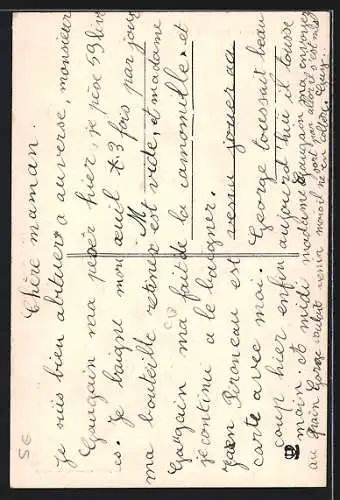 Chère maman.
je suis bien abituer a auverse, monsieur
Gaugain ma peser hier, je pèse 59 livr
es. Je baigne mon œuil 2.3 fois par jour
ma bouteille est vide, et madame M
Gaugain ma fait de la camomille et
je continu a le baigner.
Jean Bronceau est venu jouer au
carte avec moi. George toussait beau
coup hier enfin aujourd'hui il tousse
main. et midi madame Gaugain ma envoyer
au grain George voulait venir mais il ne sort pas alors il s'est mis
en colère. Guy.
56